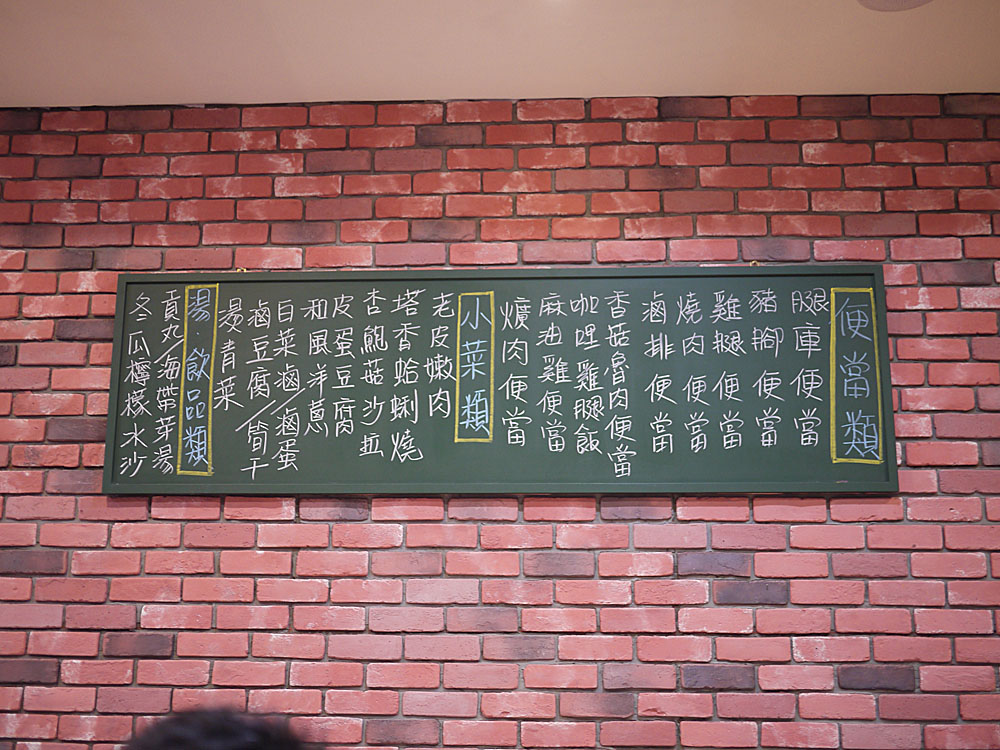 便當類
腿庫便當
豬腳便當
雞腿便當
燒肉便當
滷排便當
香菇魯肉便當
咖哩雞腿飯
麻油雞便當
爌肉便當
小菜類
老皮嫩肉
塔香蛤蜊燒
杏鮑菇沙拉
皮蛋豆腐
和風洋蔥
白菜滷/滷蛋
滷豆腐/筒干
燙青菜
湯.飲品類
貢丸/海帶芽湯
冬瓜檸檬冰沙